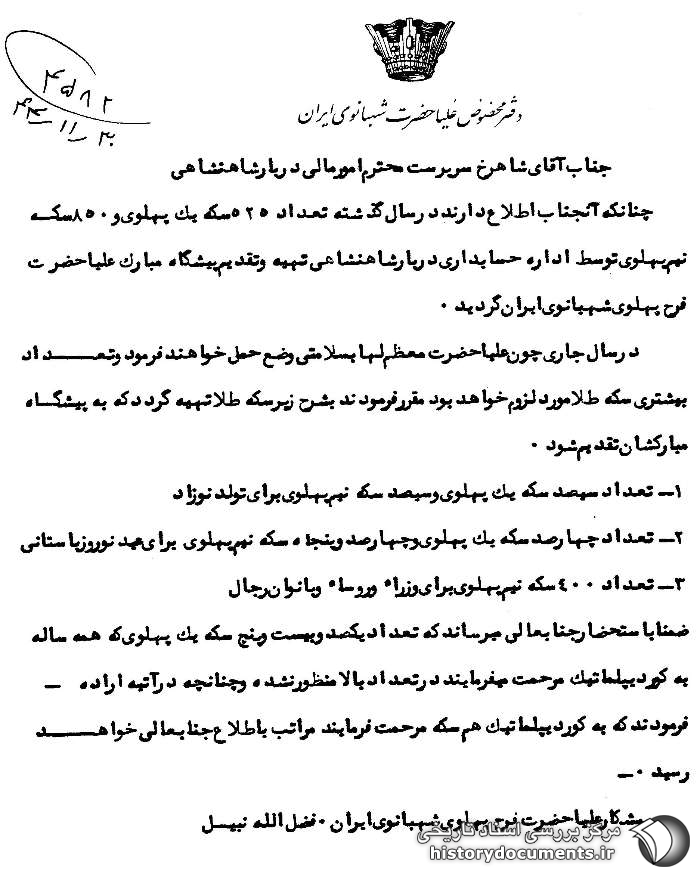 ۴۵۸۲
۴۴-۱۱-۲۰
دفتر مخصوص علیاحضرت شهبانوی ایران
جناب آقای شاهرخ سرپرست محترم امور مالی دربار شاهنشاهی
چنانکه آنجناب اطلاع دارند در سال گذشته تعداد ۵۲۵ سکه یك پهلوی و ۸۵۰ سکه
نیم پهلوی توسط اداره حسابداری دربار شاهنشاهی تهیه و تقدیم پیشگاه مبارك علیاحضرت
فرح پهلوی شهبانوی ایران گردید ۰
در سال جاری چون علیاحضرت معظم لها بسلامتی وضع حمل خواهند فرمود و تعداد
بیشتری سکه طلا مورد لزوم خواهد بود مقرر فرمودند بشرح زیر سکه طلا تهیه گردد که به پیشگاه
مبارکشان تقدیم شود ۰
۱ـ تعداد سیصد سکه یك پهلوی و سیصد سکه نیم پهلوی برای تولد نوزاد
۲ـ تعداد چهارصد سکه یك پهلوی و چهارصد و پنجاه سکه نیم پهلوی برای عید نوروز باستانی
۳ـ تعداد ۴۰۰ سکه نیم پهلوی برای وزراء و روساء و بانوان رجال
ضمنا باستحضار جنابعالی میرساند که تعداد یکصد و بیست و پنج سکه یك پهلوی که همه ساله
به کوردیپلماتیك مرحمت میفرمایند در تعداد بالا منظور نشده و چنانچه در آتیه اراده ـ
فرمودند که به کوردیپلماتیك هم سکه مرحمت فرمایند مراتب باطلاع جنابعالی خواهد
رسید ۰ـ
پیشکار علیاحضرت فرح پهلوی شهبانوی ایران ۰ فضل الله نبیل
مرکز بررسی اسناد تاریخی
historydocuments.ir